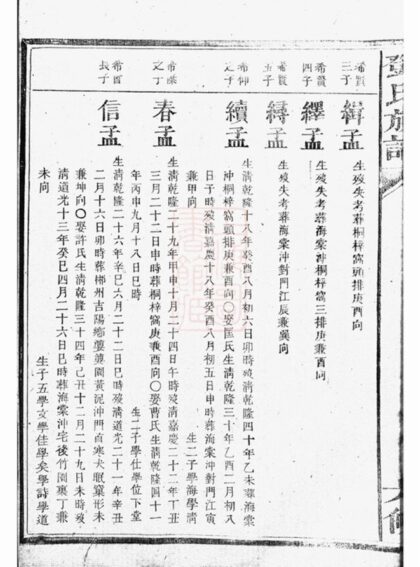 希賢三子
孟緝
生歿失考葬桐梓窩頭排庚酉向
希賢四子
孟繹
生歿失考葬海棠沖桐梓窩三排庚兼酉向
希賢五子
孟縟
生歿失考葬海棠沖對門江辰兼巽向
希仰之子
孟續
生清乾隆十八年癸酉八月初六日卯時歿清乾隆四十年乙未葬海棠
沖桐梓窩頭排庚兼酉向〇娶匡氏生清乾隆三十年乙酉二月初八
日子時歿清嘉慶十八年癸酉八月初五日申時葬海棠沖對門江寅
兼甲向
生二子學海學清
之子
孟春
生清乾隆二十九年甲申十月二十四日午時歿清嘉慶二十二年丁丑
三月二十二日申時葬桐梓窩庚兼酉向〇娶曹氏生清乾隆四十一
年丙申九月十八日巳時
生二子學仕學位下堂
長子
孟信
生清乾隆二十六年辛巳六月二十二日巳時歿清道光二十一年辛丑
二月十六日卯時葬郴州吉陽鄉

黃泥沖門首寒犬眠窠形未
兼坤向〇娶許氏生清乾隆三十四年己丑十二月二十九日未時歿
清道光十三年癸巳四月二十六日巳時葬海棠沖宅後竹園裏丁兼
未向
生子五學文學佳學矣學詩學道
氏族譜